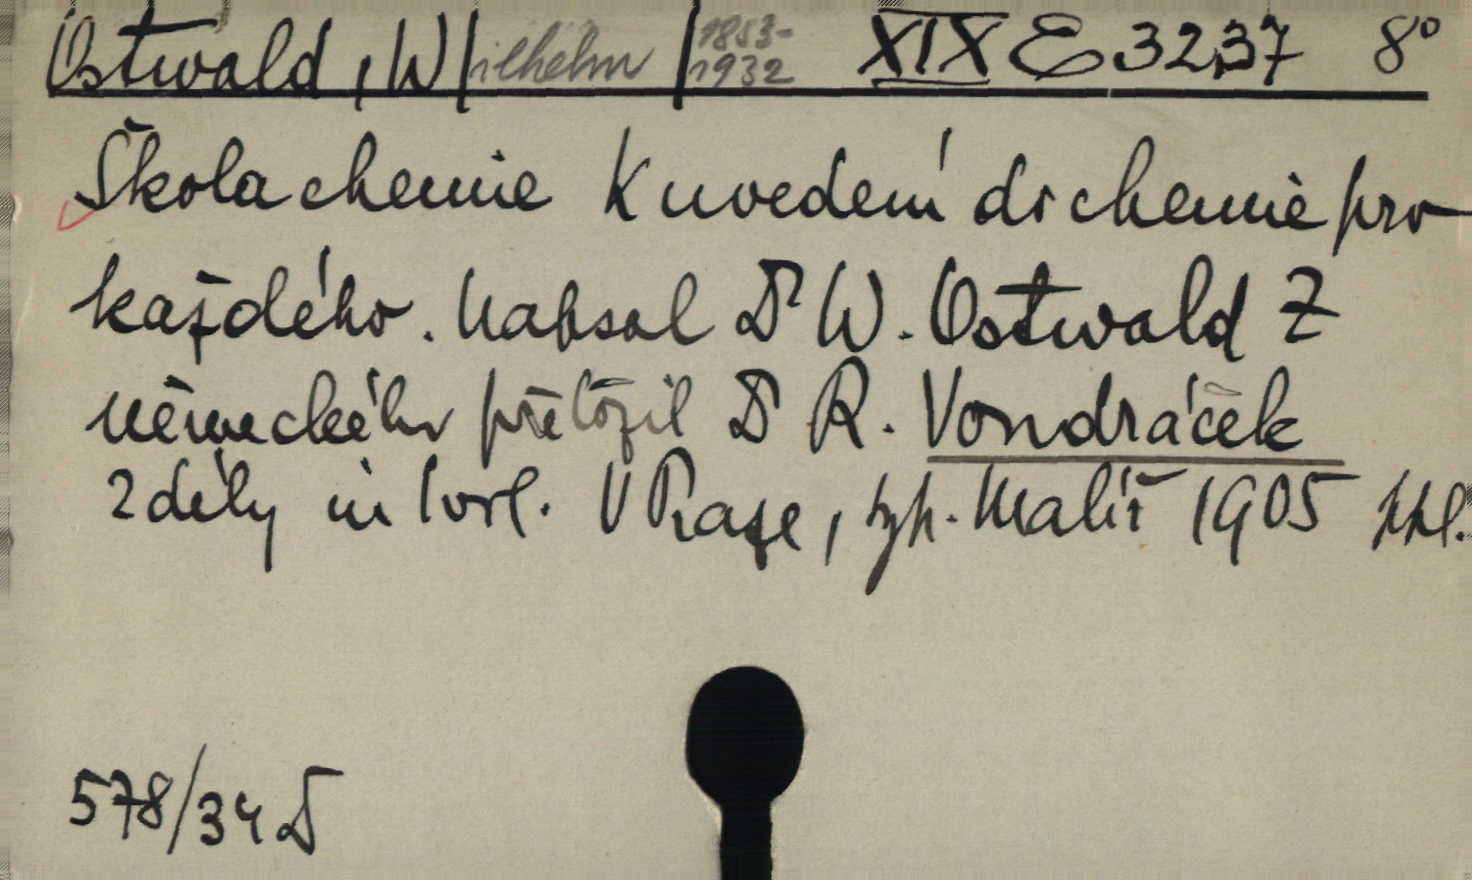 Ostwald, W|ilhelm |1853-1932 XIX E 3237 8°
Škola chemie K uvedení do chemie pro
každého. Napsal Dr W. Ostwald Z
německého přeložil Dr R. Vondráček
2 díly in 1 vol. V Praze, typ. Malíř 1905 ppl.
578/34 D